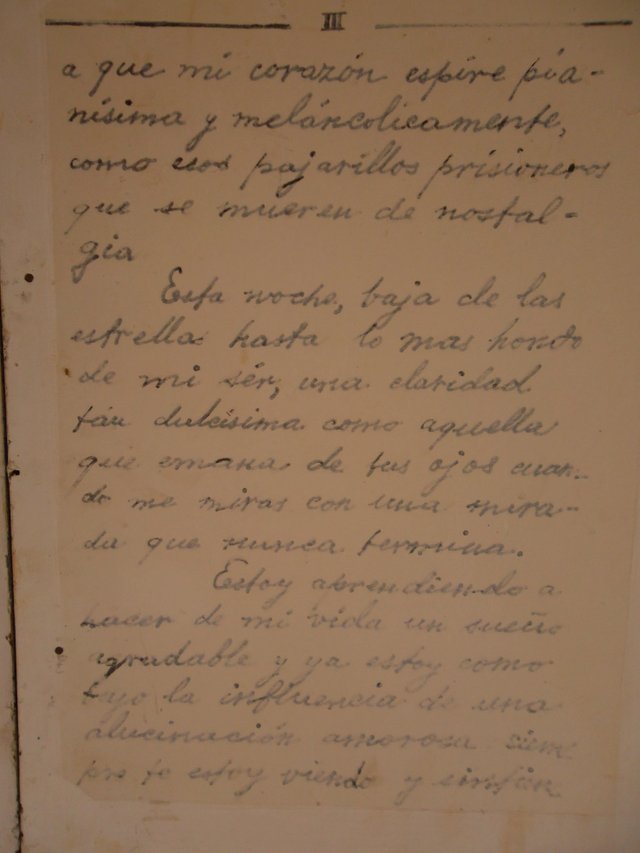 III
a que mi corazón espire pia-
nísima y meláncolicamente,
como esos pajarillos prisioneros
que se mueren de nostal-
gia
Esta noche, baja de las
estrellas hasta lo mas hondo
de mi sér, una claridad
tán dulcísima como aquella
que emana de tus ojos cuan-
do me miras con una mira-
da que nunca termina.
Estoy aprendiendo a
hacer de mi vida un sueño
agradable y ya estoy como
bajo la influencia de una
alucinación amorosa siem
pre te estoy viendo y sintien